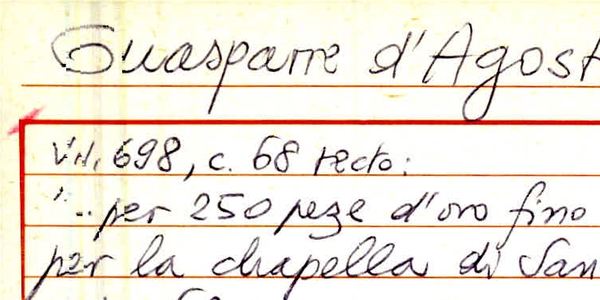 Guasparre d'Agost
Vil. 698, c. 68 recto:
"...per 250 peze d'oro fino
per la chapella di San